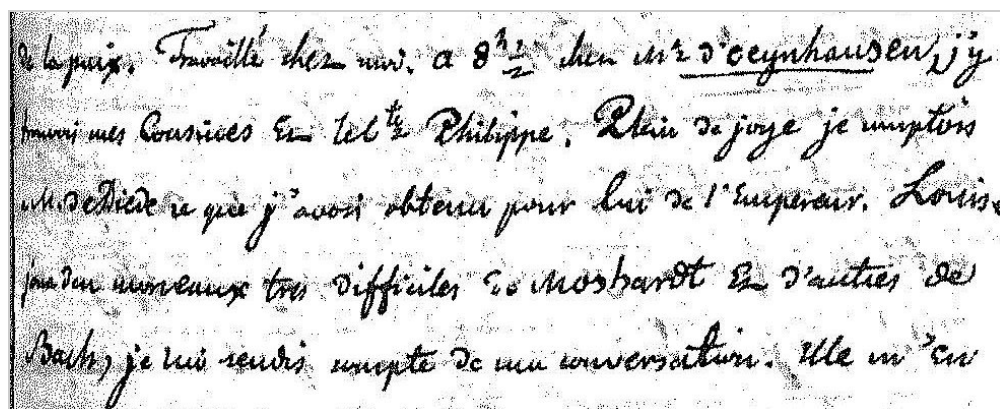 de la paix. Travaillé chez moi. a 8h ½ chez Mr d'oeynhausen, j'y
trouvai mes Cousines Et le Cte Philippe. Plein de joye je comptois
M. de Diede ce que j'avois obtenu pour lui de l'Empereur. Louise
joua des morceaux tres difficiles de Moshardt Et d'autres de
Bach, je lui rendis compte de ma conversation. Elle m'en